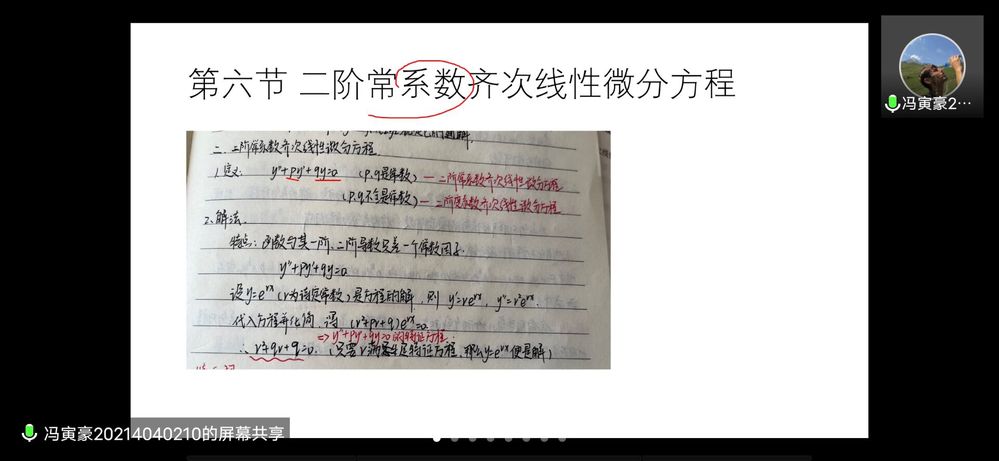 第六节 二阶常系数齐次线性微分方程
冯寅豪2…
二.二阶常系数齐次线性微分方程
1.定义: y''+py'+qy=0 (p.q是常数) — 二阶常系数齐次线性微分方程
(p.q不全是常数) — 二阶变系数齐次线性微分方程
2.解法.
特点:函数与其一阶、二阶导数只差一个常数因子.
y''+py'+qy=0
设y=e^rx (r为待定常数) 是方程的解, 则 y'=re^rx, y''=r²e^rx.
代入方程并化简, 得 (r²+pr+q)e^rx=0
=> y''+py'+qy=0的特征方程.
∴ r²+qr+q=0. (只要r满足特征方程, 那么y=e^rx便是解)
冯寅豪20214040210的屏幕共享